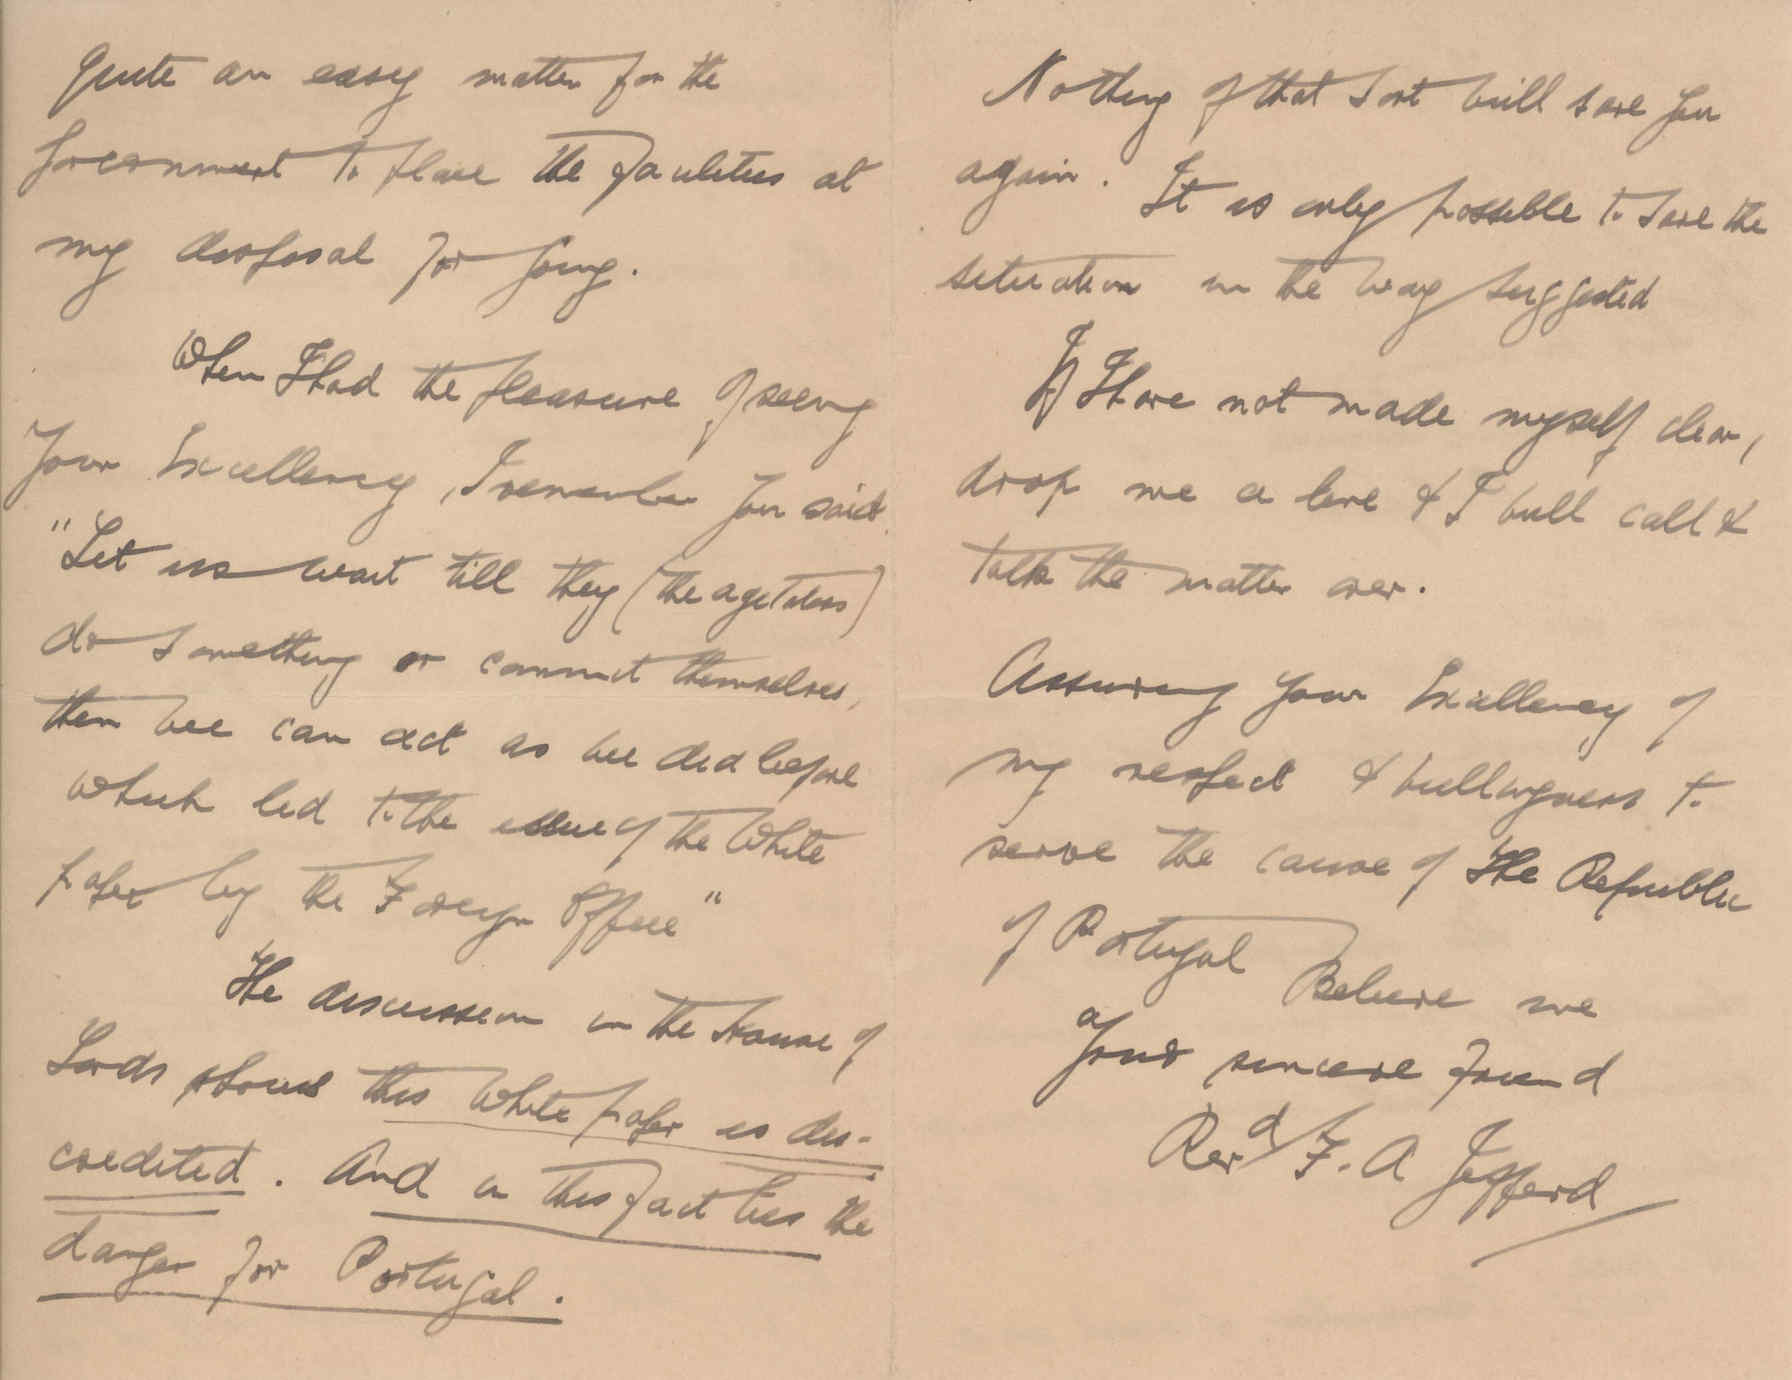 quite an easy matter for the
Government to place the facilities at
my disposal for going.
When I had the pleasure of seeing
Your Excellency, I remember you said
"Let us wait till they (the agitators)
do something or commit themselves,
then we can act as we did before
which led to the issue of the White
paper by the Foreign Office"
The discussion in the House of
Lords shows this White paper is dis-
credited. And in this fact lies the
danger for Portugal.
Nothing of that sort will save you
again. It is only possible to save the
situation in the way suggested
If I have not made myself clear,
drop me a line & I will call &
talk the matter over.
Assuring Your Excellency of
my respect & willingness to
serve the cause of the Republic
of Portugal Believe me
Your sincere friend
Revd F. A Jefferd